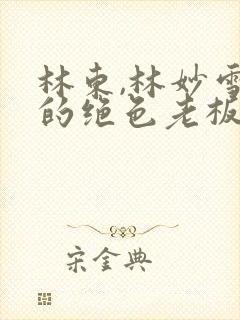 林东,林妙雪
的绝色老板
宋金典